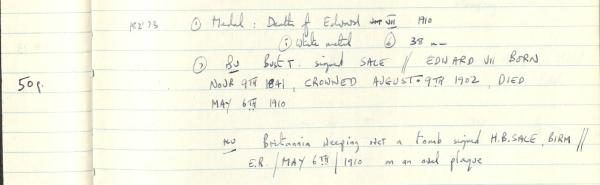 182'73 ① Medal : Death of Edward VII 1910
⑤ White metal ⑥ 38 mm
② BV Bust r. signed SALE // EDWARD VII BORN
50p. NOVR 9TH 1841, CROWNED AUGUST 9TH 1902, DIED
MAY 6TH 1910
RV Britannia weeping over a tomb signed H.B. SALE, BIRM //
E.R. / MAY 6TH / 1910 on an oval plaque